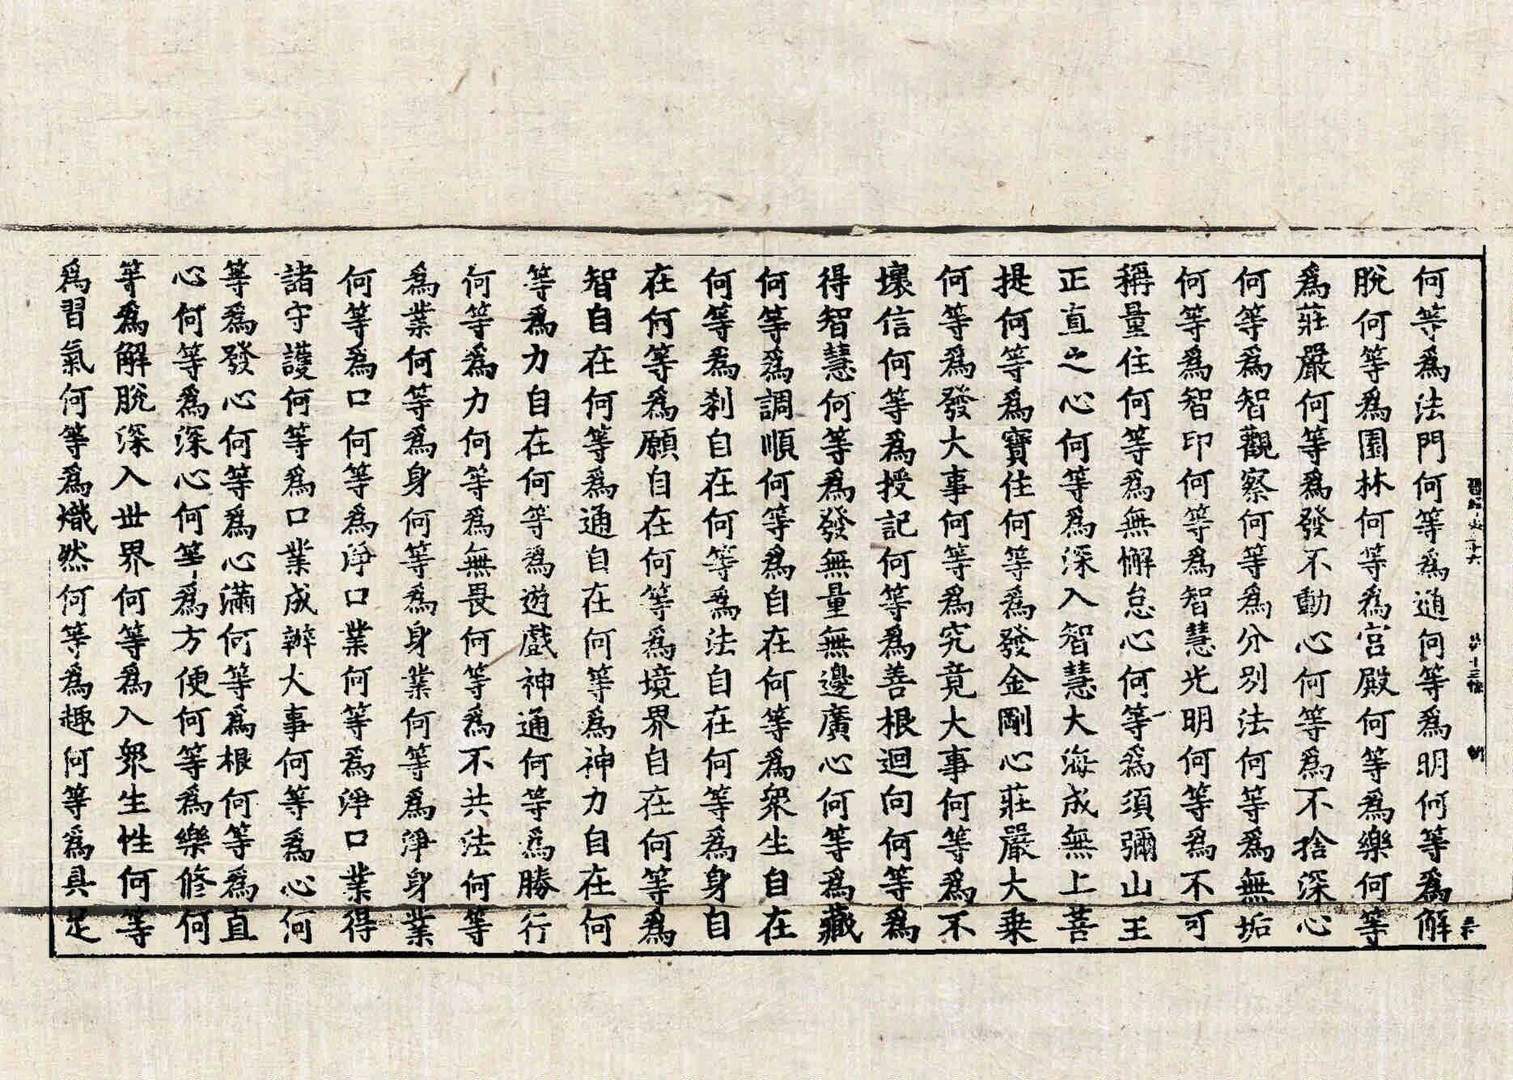 何等爲法門何等爲道何等爲明何等爲解
脫何等爲園林何等爲宮殿何等爲樂何等
爲莊嚴何等爲發不動心何等爲不捨深心
何等爲智觀察何等爲分別法何等爲無垢
何等爲智印何等爲智慧光明何等爲不可
稱量住何等爲無懈怠心何等爲須彌山王
正直之心何等爲深入智慧大海成無上菩
提何等爲寶住何等爲發金剛心莊嚴大乘
何等爲發大事何等爲究竟大事何等爲不
壞信何等爲授記何等爲善根迴向何等爲
得智慧何等爲發無量無邊廣心何等爲藏
何等爲調順何等爲自在何等爲衆生自在
何等爲刹自在何等爲法自在何等爲身自
在何等爲願自在何等爲境界自在何等爲
智自在何等爲通自在何等爲神力自在何
等爲力自在何等爲遊戲神通何等爲勝行
何等爲力何等爲無畏何等爲不共法何等
爲業何等爲身何等爲身業何等爲淨身業
何等爲口何等爲淨口業何等爲淨口業得
諸守護何等爲口業成辦大事何等爲心何
等爲發心何等爲心滿何等爲根何等爲直
心何等爲深心何等爲方便何等爲樂修何
等爲解脫深入世界何等爲入衆生性何等
爲習氣何等爲熾然何等爲趣何等爲具足